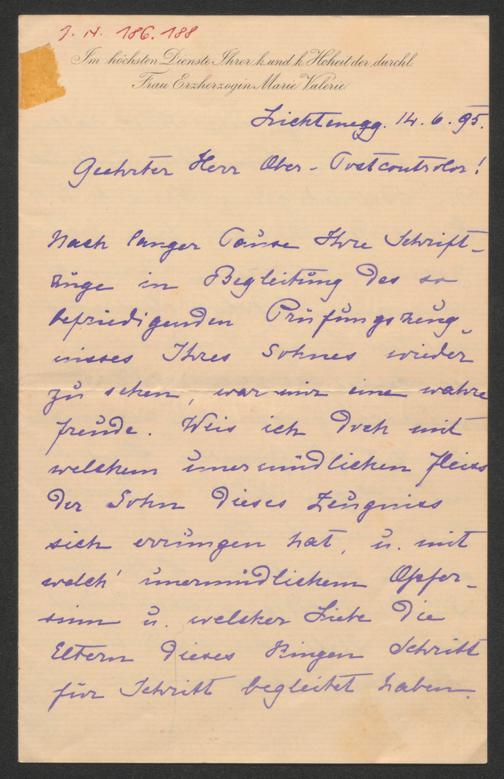 J. N. 186.188
Im höchsten Dienste Ihrer k. und k. Hoheit der durchl.
Frau Erzherzogin Marie Valerie
Lichtenegg. 14. 6. 95.
Geehrter Herr Ober-Postcontrolor!
Nach langer Pause Ihre Schrift-
züge in Begleitung des so
befriedigenden Prüfungszeug-
nisses Ihres Sohnes wieder
zu sehen, war mir eine wahre
Freude. Weis ich doch mit
welchem unermüdlichen Fleiss
der Sohn dieses Zeugniss
sich errungen hat, u. mit
welch' unermüdlichem Opfer-
sinn u. welcher Liebe die
Eltern dieses Ringen Schritt
für Schritt begleitet haben.